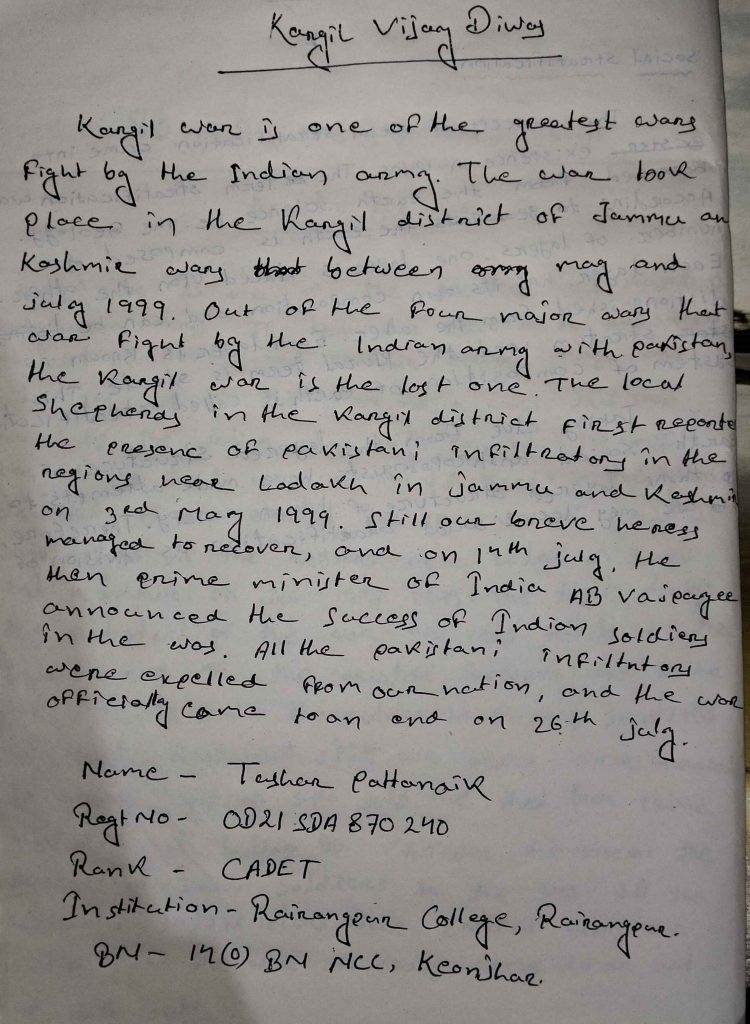 Kargil Vijay Diwas
Kargil war is one of the greatest wars
Fight by the Indian army. The war took
place in the Kargil district of Jammu an
Kashmir wars between may and
july 1999. Out of the Four major wars that
war Fight by the Indian army with pakistan,
the Kargil war is the last one. The local
Shepherds in the Kargil district First reporte
the presenc of pakistani infiltrators in the
regions near Ladakh in jammu and Kashmir
on 3rd May 1999. Still our breve heress
managed to recover, and on 14th july, the
then prime minister of India AB Vajpayee
announced the success of Indian soldiers
in the was. All the pakistani infiltntors
were expelled from our nation, and the war
officially came to an end on 26th july.
Name - Tushar Pattanaik
Regt No - OD21 SDA 870 240
Rank - CADET
Institution - Rairangpur College, Rairangpur.
BN - 14(O) BN NCC, Keonjhar.